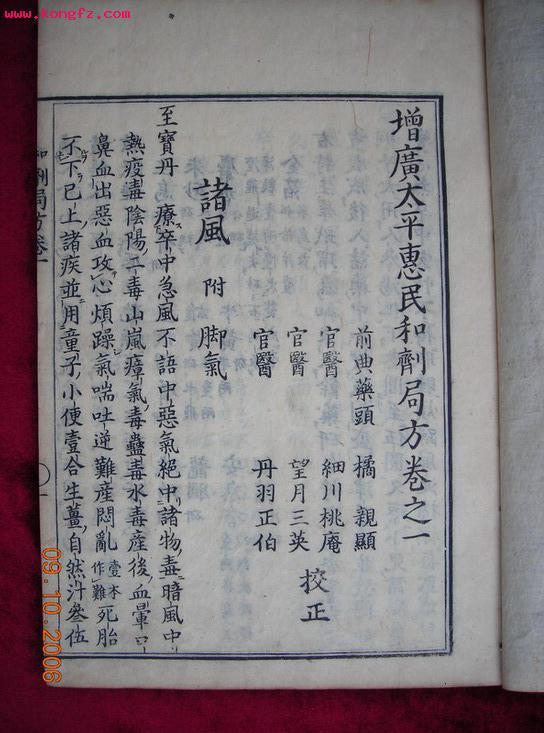 www.kongfz.com
增廣太平惠民和劑局方卷之一
前典藥頭 橘 親顯
官醫 細川桃庵
官醫 望月三英
官醫 丹羽正伯
校正
諸風 附 脚氣
至寶丹 療卒中急風不語中惡氣絕中諸物毒暗風中
熱疫毒陰陽二毒山嵐瘴氣毒蠱毒水毒產後血暈口
鼻血出惡血攻心煩躁氣喘吐逆難產悶亂壹本作難死胎
不下已上諸疾並用童子小便壹合生薑自然汁叄伍
和劑局方卷一
09.10.2006